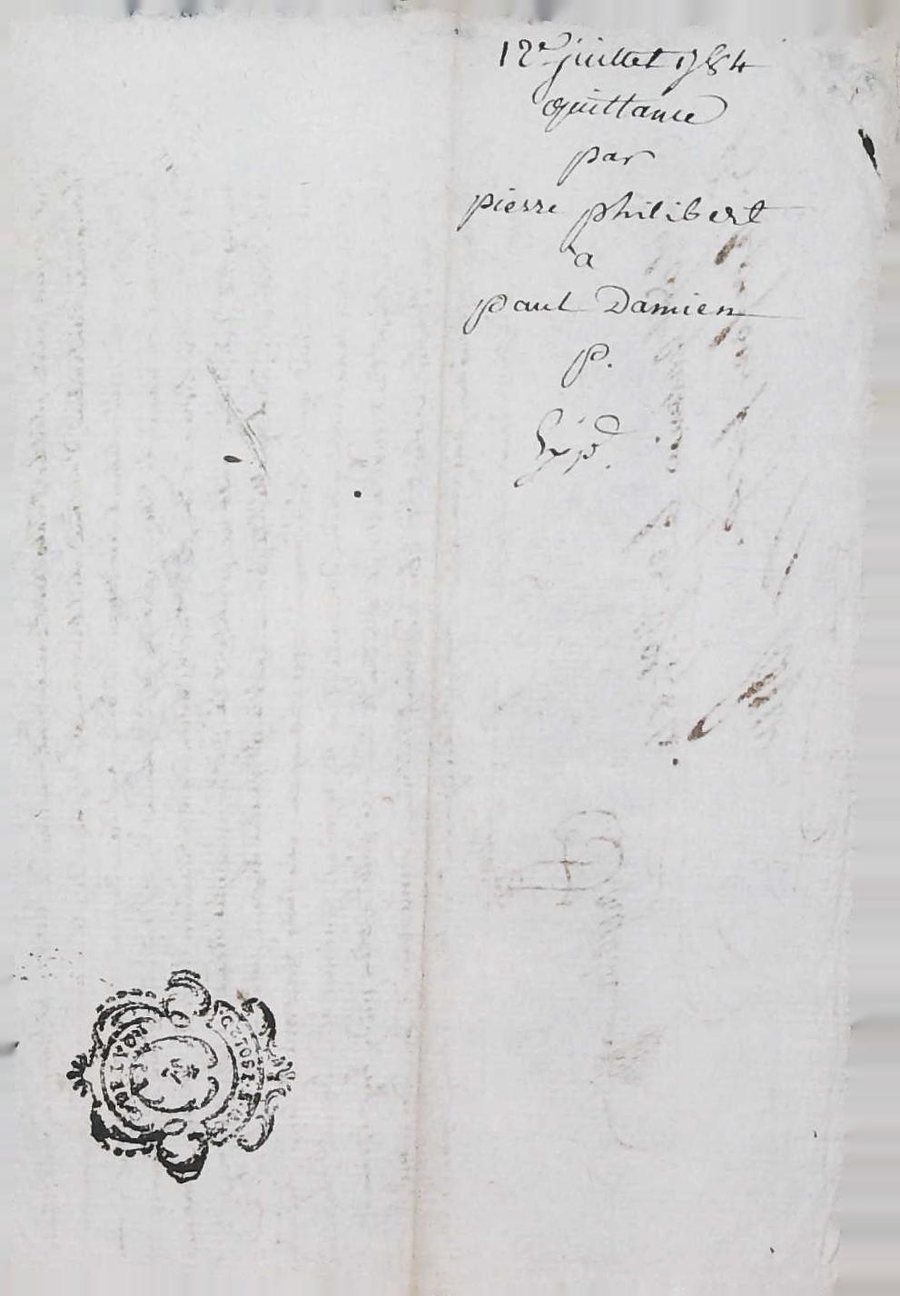 12e juillet 1784
quittance
par
pierre philibert
a
paul Damien
p.